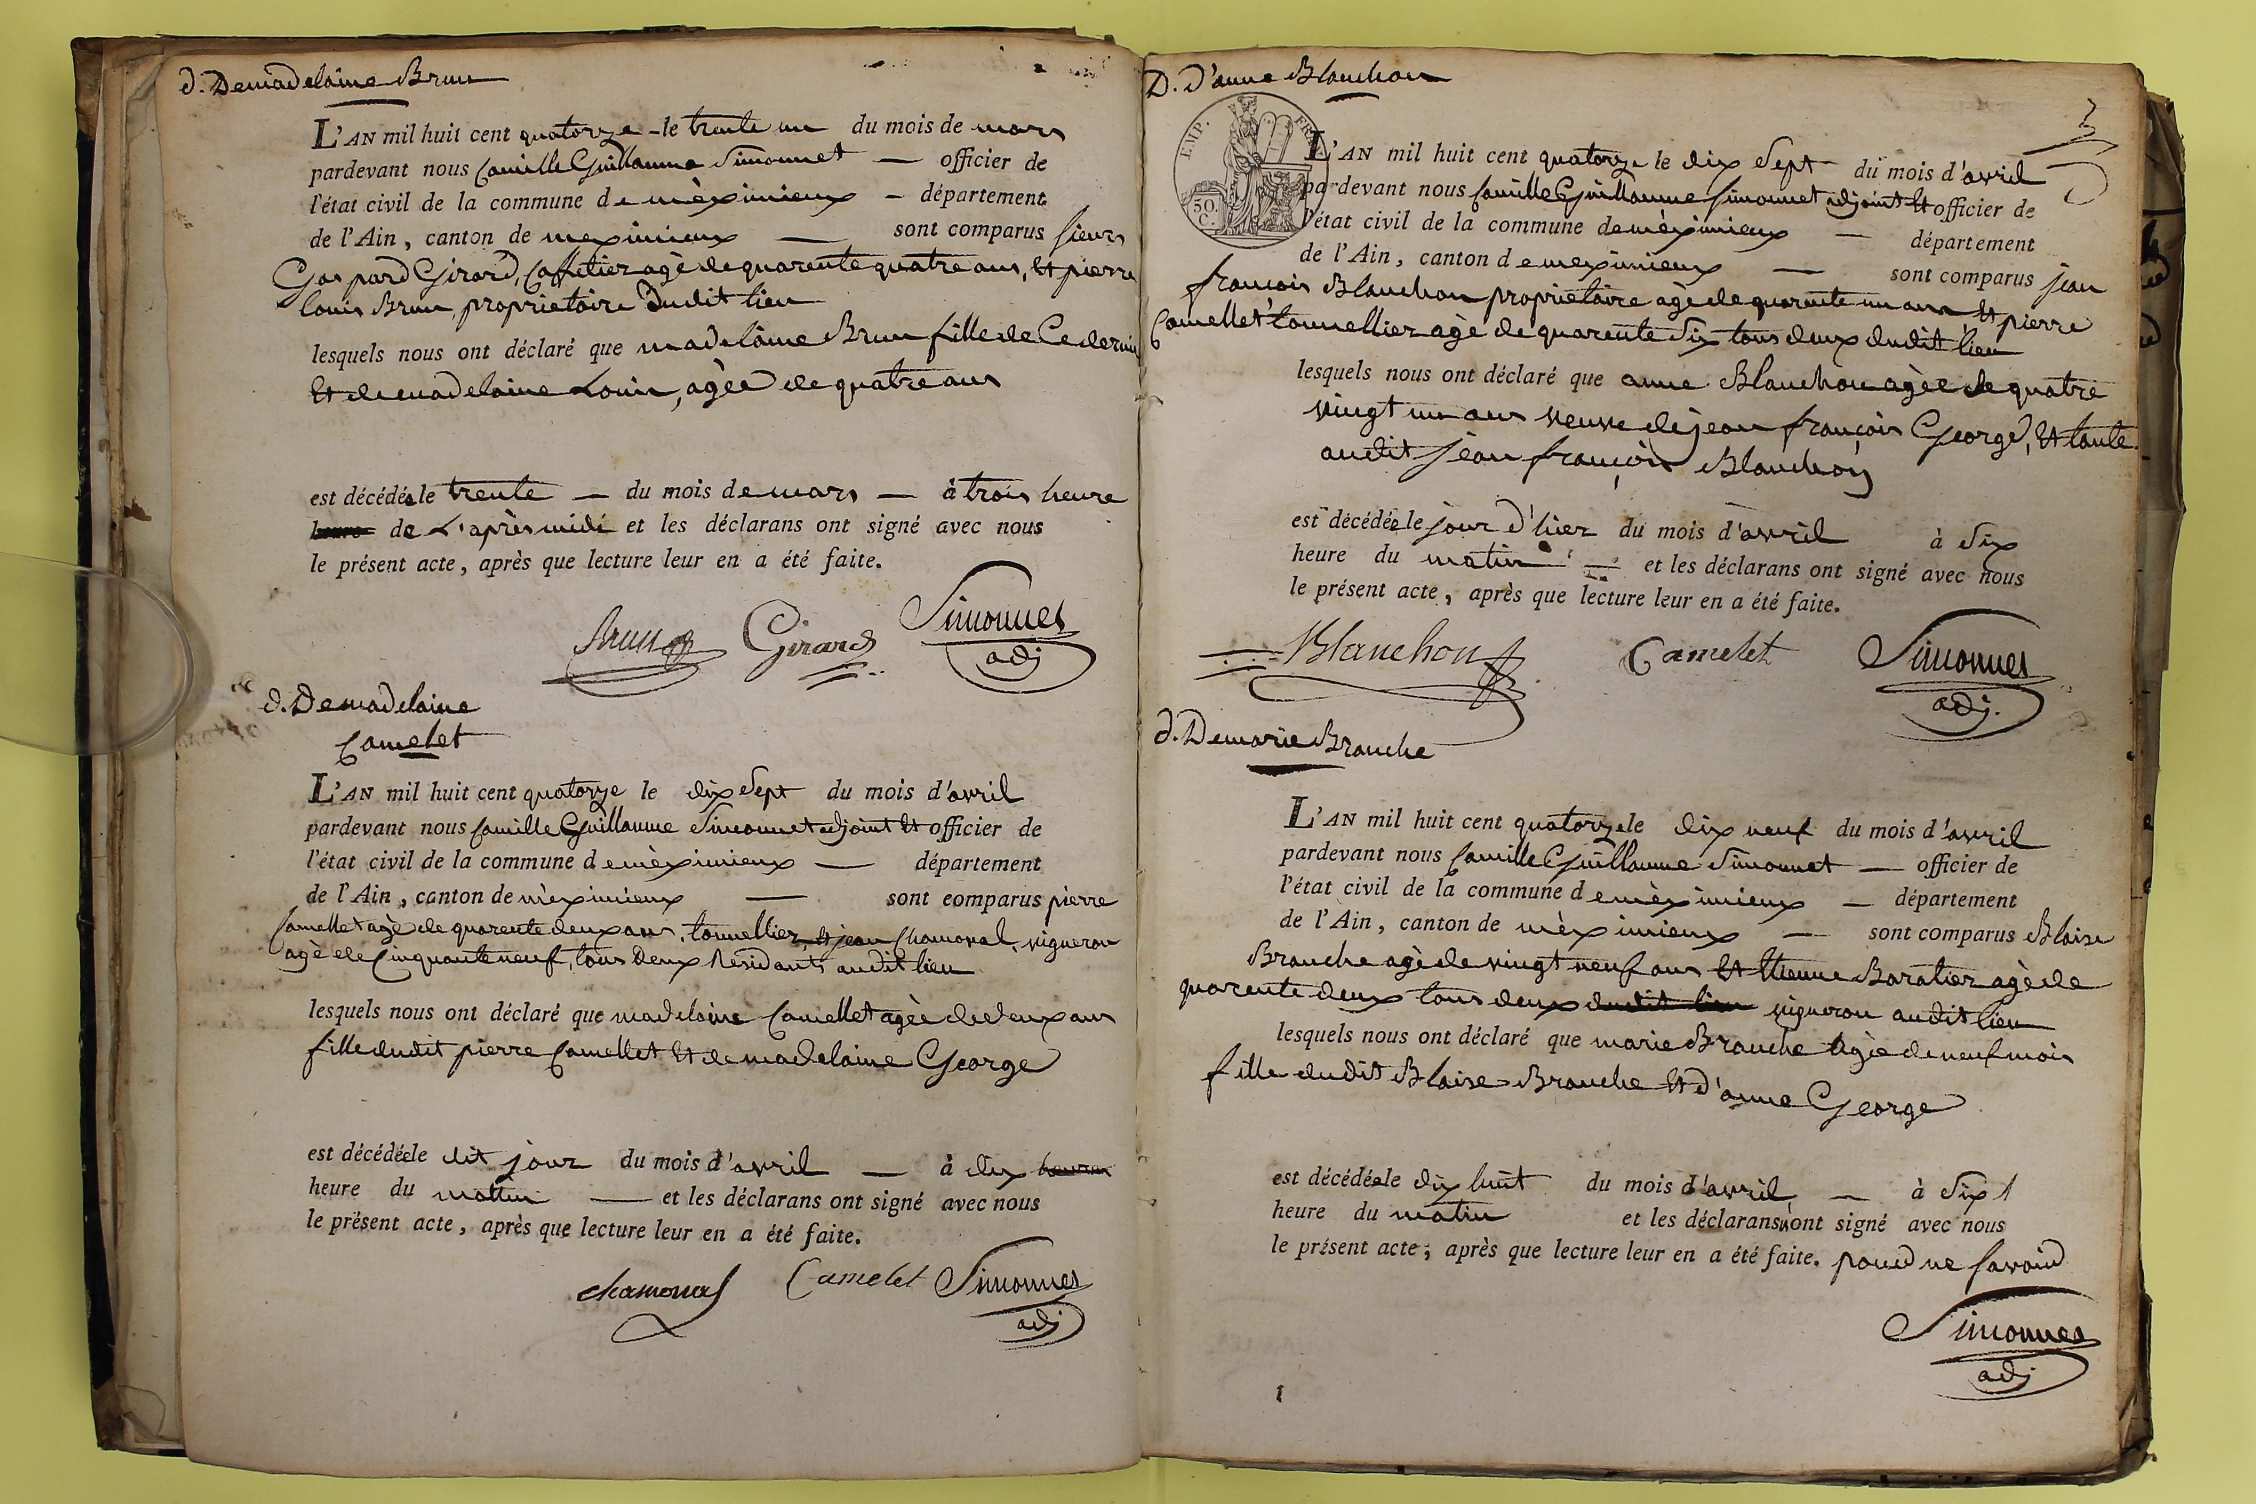 d. De madelaine Brun
L'AN mil huit cent quatorze - le trente un du mois de mars
pardevant nous Camille Guillaume Simonnet — officier de
l'état civil de la commune de mèximieux - département
de l'Ain, canton de meximieux — sont comparus sieurs
Gaspard Girard, Caffetier agè de quarente quatre ans, Et pierre
louis Brun proprietaire dudit lieu
lesquels nous ont déclaré que madelaine Brun fille de Ce dernier
Et de madelaine Louis, agèe de quatre ans
est décédée le trente — du mois de mars — à trois heure
heure de L'après midi et les déclarans ont signé avec nous
le présent acte, après que lecture leur en a été faite.
Brun Girard Simonnet
adj
d. De madelaine
Camelet
L'AN mil huit cent quatorze le dix Sept du mois d'avril
pardevant nous Camille Guillaume Simonnet adjoint Et officier de
l'état civil de la commune de mèximieux — département
de l'Ain, canton de mèximieux — sont comparus pierre
Camellet agè de quarente deux ans, tonnellier, Et jean Chamonal, vigneron
agè de Cinquante neuf, tous deux Résidants audit lieu
lesquels nous ont déclaré que madelaine Camellet agèe de deux ans
fille dudit pierre Camellet Et de madelaine George
est décédée le dit jour du mois d'avril — à dix heures
heure du mattin — et les déclarans ont signé avec nous
le présent acte, après que lecture leur en a été faite.
chamonal Camelet Simonnet
adj
D. D'anne Blanchon
3
EMP. FR
50
C.
L'AN mil huit cent quatorze le dix Sept du mois d'avril
pardevant nous Camille Guillaume Simonnet adjoint Et officier de
l'état civil de la commune de mèximieux — département
de l'Ain, canton de meximieux — sont comparus jean
françois Blanchon proprietaire agè de quarente un ans Et pierre
Camellet tonnellier agè de quarente Six tous deux dudit lieu
lesquels nous ont déclaré que anne Blanchon agèe de quatre
vingt un ans veuve de jean françois George, Et tante
audit jean françois Blanchon
est décédée le jour d'hier du mois d'avril à Six
heure du matin — et les déclarans ont signé avec nous
le présent acte, après que lecture leur en a été faite.
Blanchon Camelet Simonnet
adj.
d. De marie Branche
L'AN mil huit cent quatorze le dix neuf du mois d'avril
pardevant nous Camille Guillaume Simonnet — officier de
l'état civil de la commune de mèximieux — département
de l'Ain, canton de mèximieux — sont comparus Blaise
Branche agè de vingt neuf ans Et Etienne Baratier agè de
quarente deux tous deux dudit lieu vigneron audit lieu
lesquels nous ont déclaré que marie Branche Agèe de neuf mois
fille dudit Blaise Branche Et d'anne George
est décédée le dix huit du mois d'avril — à Six
heure du matin et les déclarans n'ont signé avec nous
le présent acte, après que lecture leur en a été faite. pour ne Savoir
Simonnet
adj